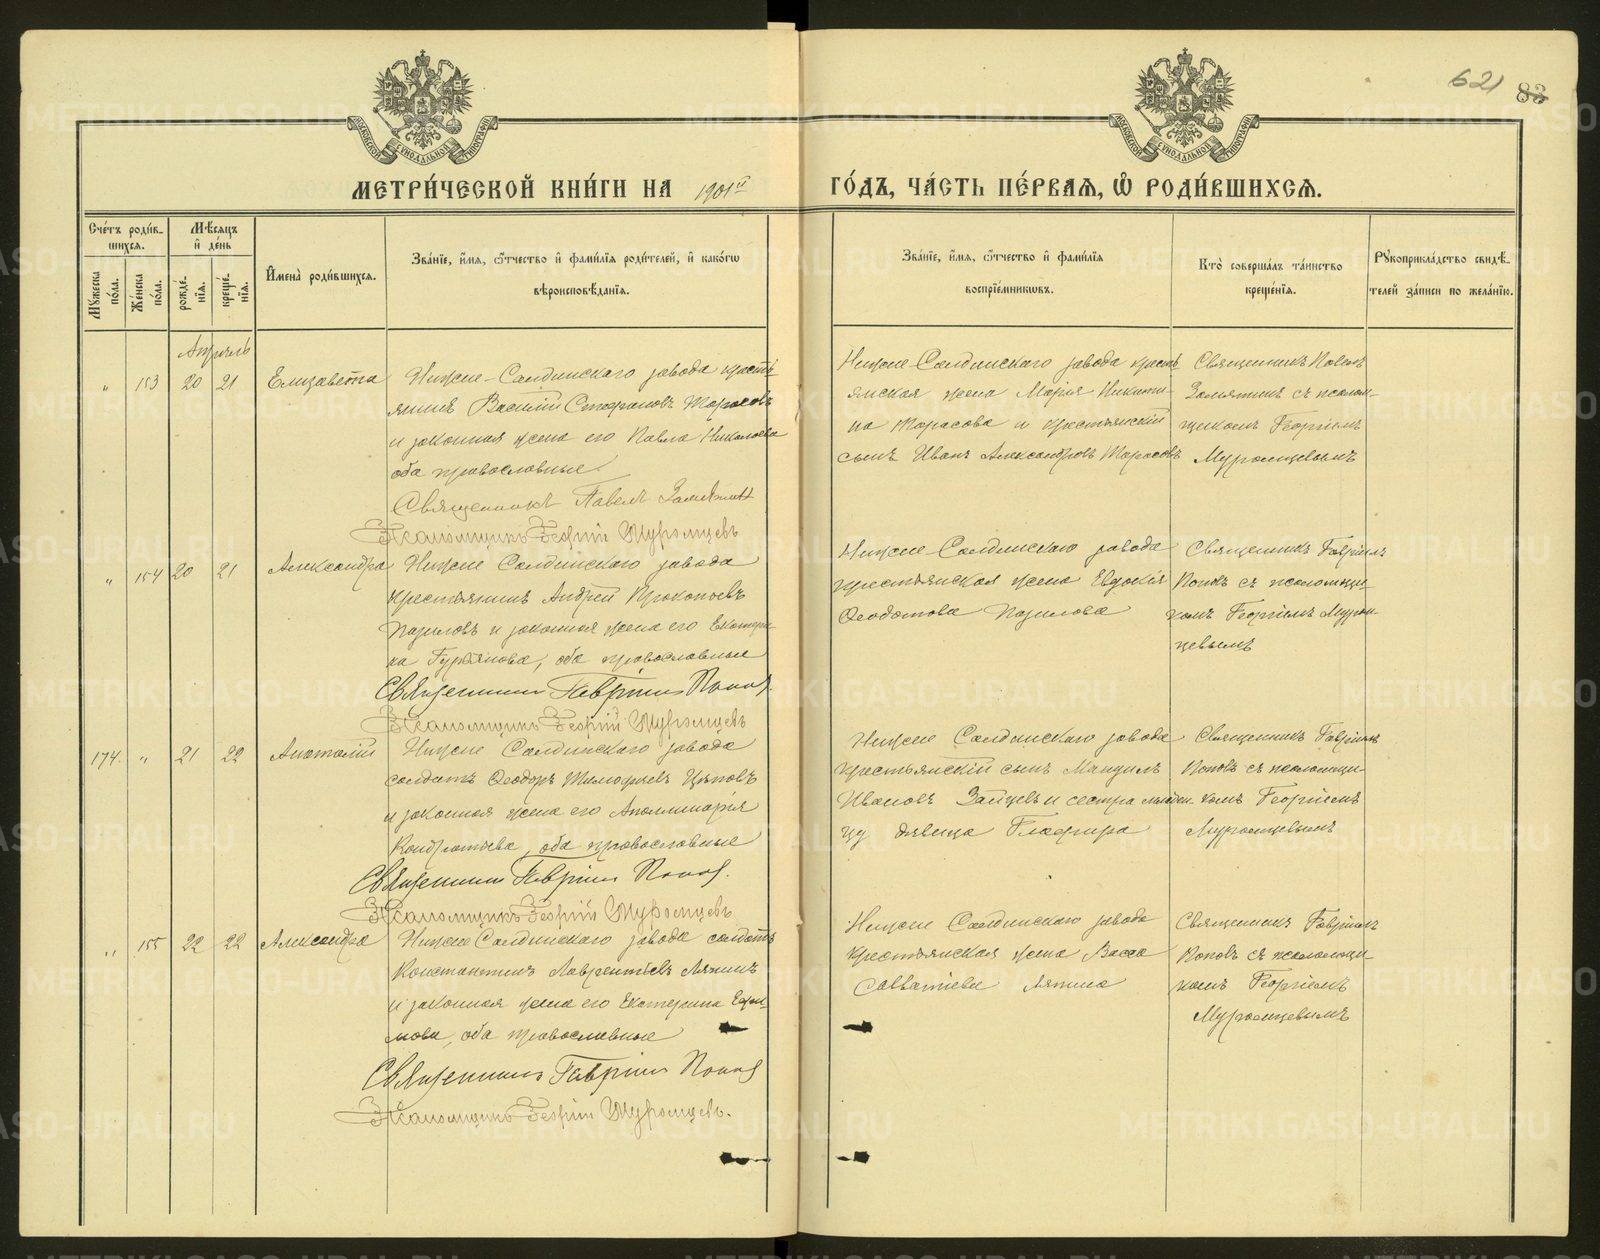 621 83
МОСКОВСКОЙ СѴНОДАЛЬНОЙ ТИПОГРАФІИ
МОСКОВСКОЙ СѴНОДАЛЬНОЙ ТИПОГРАФІИ
МЕТРИ́ЧЕСКОЙ КНИ́ГИ НА 1901й ГО́ДЪ, ЧА́СТЬ ПЕ́РВАѦ, Ѿ РОДИ́ВШИХСѦ.
Сче́тъ роди́в-
шихся.
Мѣ́сяцъ
и де́нь
Му́жеска
по́ла.
Же́нска
по́ла.
рожде́-
нія.
креще́-
нія.
Имена̀ роди́вшихся.
Зва́ніе, и́мя, ѻ́тчество и фами́лія роди́телей, и како́гѡ
вѣроисповѣ́данія.
Зва́ніе, и́мя, ѻ́тчество и фами́лія
воспріе́мникѡвъ.
Кто̀ соверша́лъ та́инство
креще́нія.
Рукоприкла́дство свидѣ́-
телей за́писи по жела́нію.
Апрѣль
" 153 20 21 Елизавета
Нижне-Салдинскаго завода кресть
янинъ Василій Стефановъ Тарасовъ
и законная жена его Павла Николаева
оба православные
Священникъ Павелъ Замятинъ
Псаломщикъ Георгій Муромцевъ
Нижне-Салдинскаго завода кресть
янская жена Марія Никити-
на Тарасова и крестьянскій
сынъ Иванъ Александровъ Тарасовъ
Священникъ Павелъ
Замятинъ съ псалом-
щикомъ Георгіемъ
Муромцевымъ
" 154 20 21 Александра
Нижне Салдинскаго завода
крестьянинъ Андрей Прокопьевъ
Пазиловъ и законная жена его Екатери-
на Гурьянова, оба православные
Священникъ Гавріилъ Поповъ
Псаломщикъ Георгій Муромцевъ
Нижне-Салдинскаго завода
крестьянская жена Евдокія
Ѳеодотова Пазилова
Священникъ Гавріилъ
Поповъ съ псаломщи-
комъ Георгіемъ Муром-
цевымъ
174. " 21 22 Анатолій
Нижне Салдинскаго завода
солдатъ Ѳеодоръ Тимофеевъ Цѣповъ
и законная жена его Аполлинарія
Кондратьева, оба православные
Священникъ Гавріилъ Поповъ.
Псаломщикъ Георгій Муромцевъ
Нижне Салдинскаго завода
крестьянскій сынъ Мануилъ
Ивановъ Зайцевъ и сестра младен-
цу дѣвица Глафира
Священникъ Гавріилъ
Поповъ съ псаломщи-
комъ Георгіемъ
Муромцевымъ
" 155 22 22 Александра
Нижне Салдинскаго завода солдатъ
Константинъ Лаврентьевъ Ляпинъ
и законная жена его Екатерина Ефи-
мова, оба православные
Священникъ Гавріилъ Поповъ
Псаломщикъ Георгій Муромцевъ.
Нижне Салдинскаго завода
крестьянская жена Васса
Савватіева Ляпина
Священникъ Гавріилъ
Поповъ съ псаломщи-
комъ Георгіемъ
Муромцевымъ
METRIKI.GASO-URAL.RU